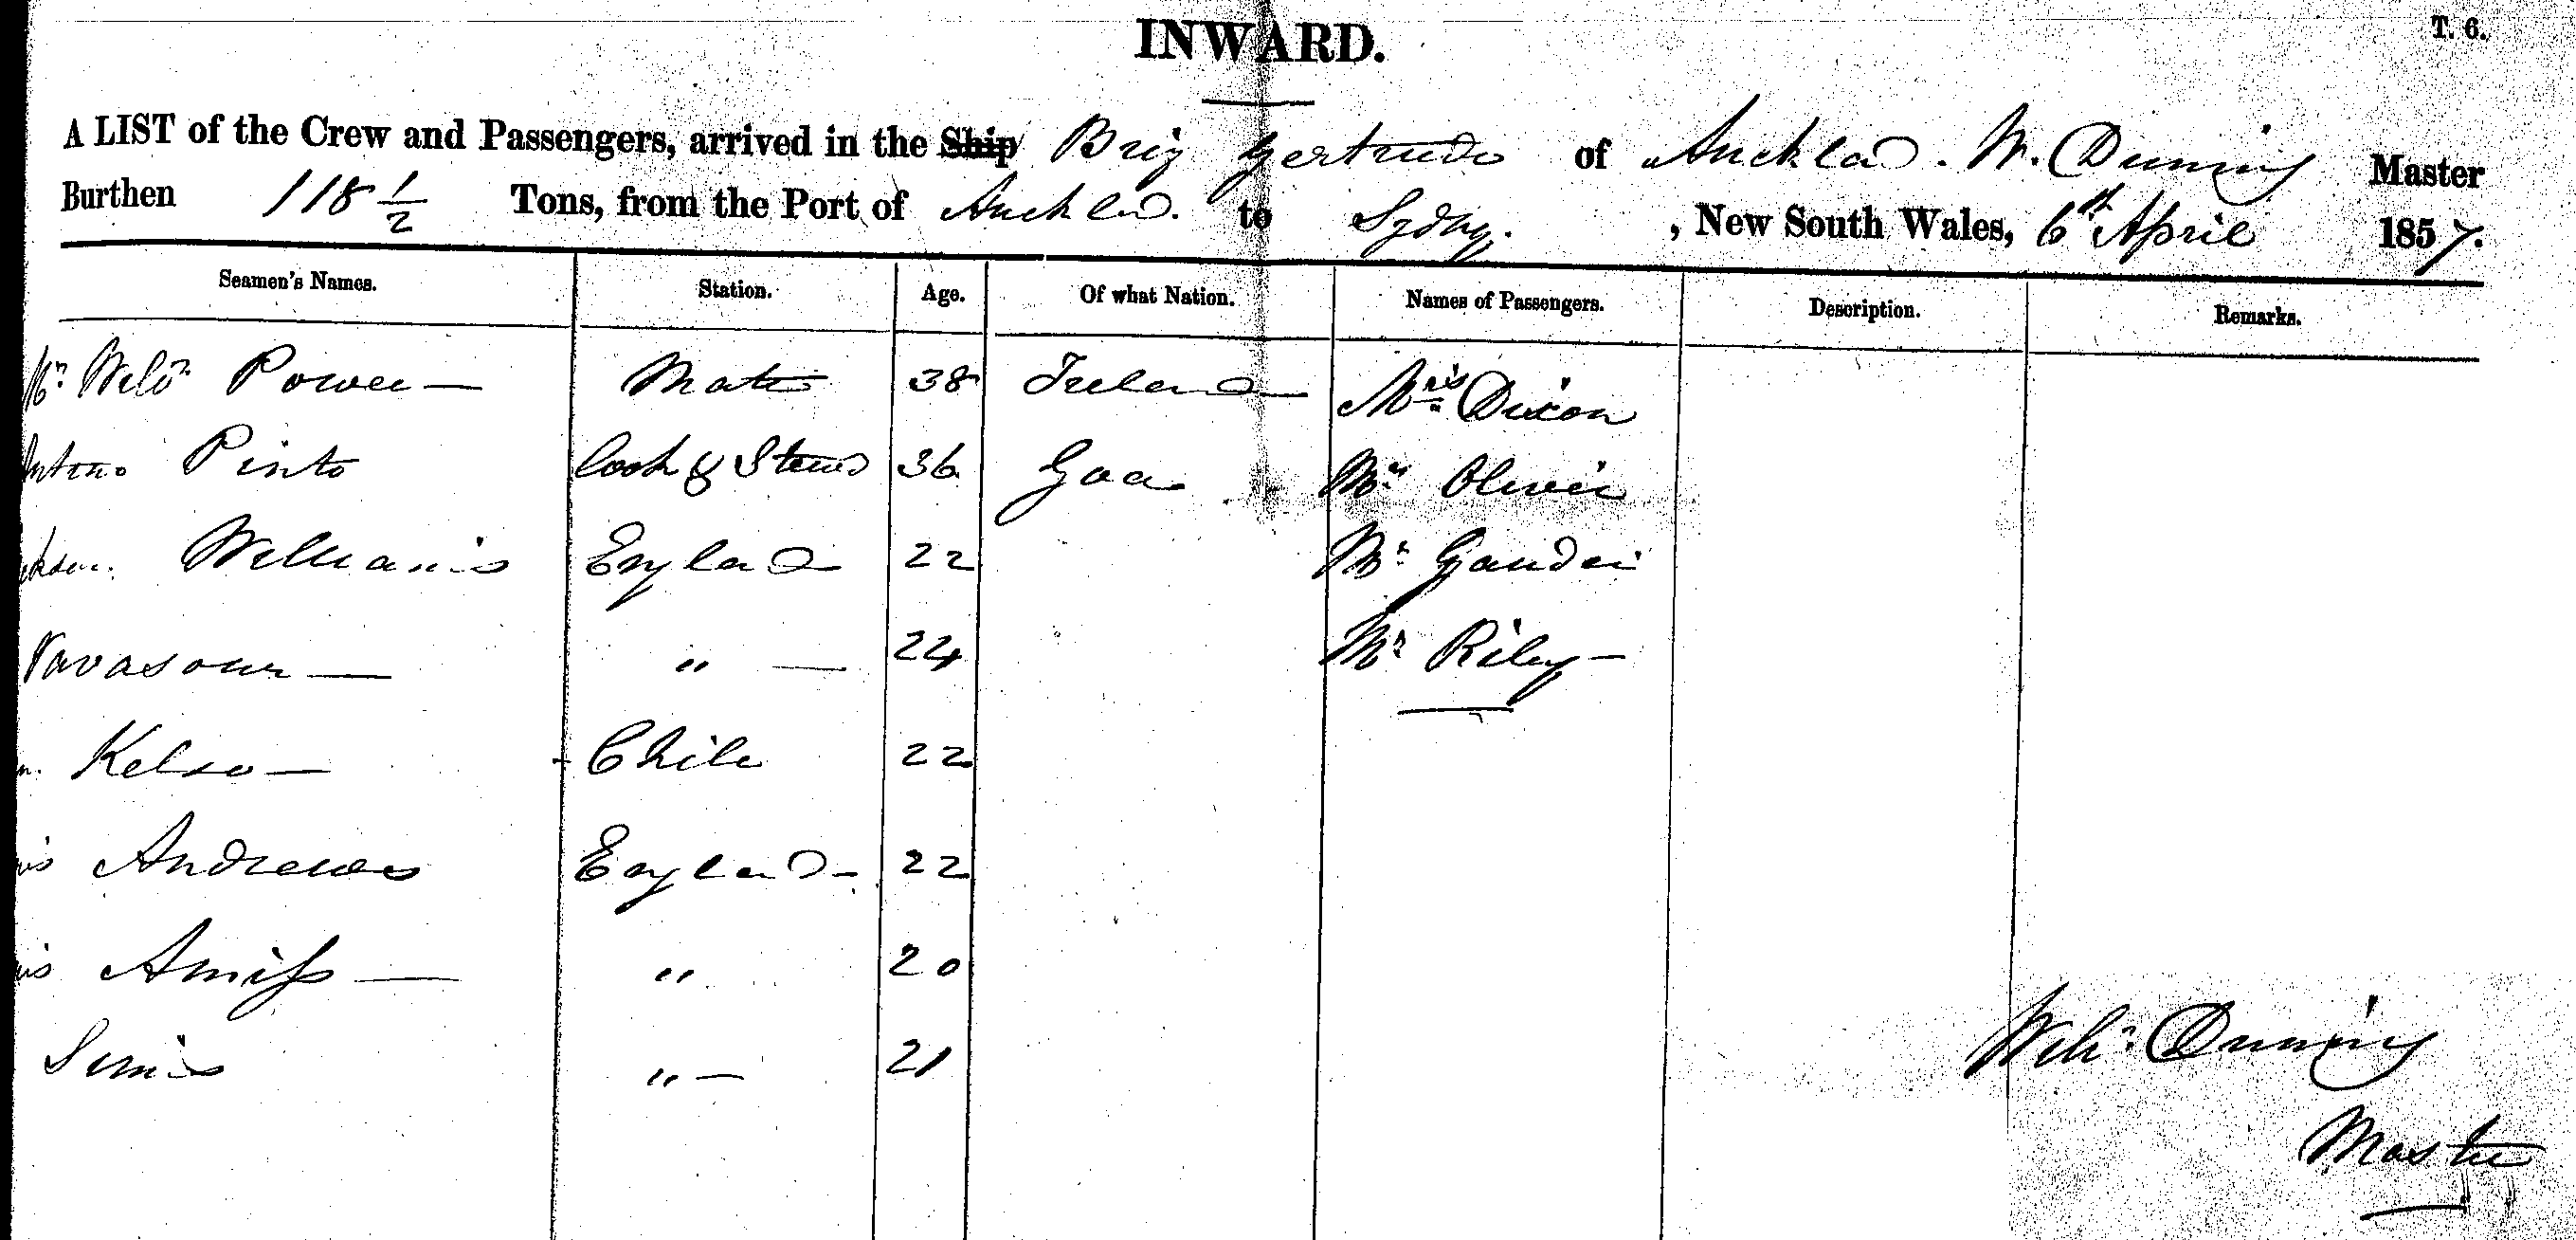 INWARD.
T. 6.
A LIST of the Crew and Passengers, arrived in the Ship Brig Gertrude of Auckland. W. Dunning Master
Burthen 118 1/2 Tons, from the Port of Auckland. to Sydney. , New South Wales, 6th April 1857.
Seamen's Names. Station. Age. Of what Nation. Names of Passengers. Description. Remarks.
Mr. Willm Power — Mate 38 Ireland — Mrs Dixon
Antonio Pinto Cook & Steward 36 Goa Mr Oliver
Williams England 22 Mr Gander
Vavasour — " — 24 Mr Riley —
Kelso — Chile 22
Andrews England - 22
Amiss — " 20
" — 21
Willm. Dunning
Master